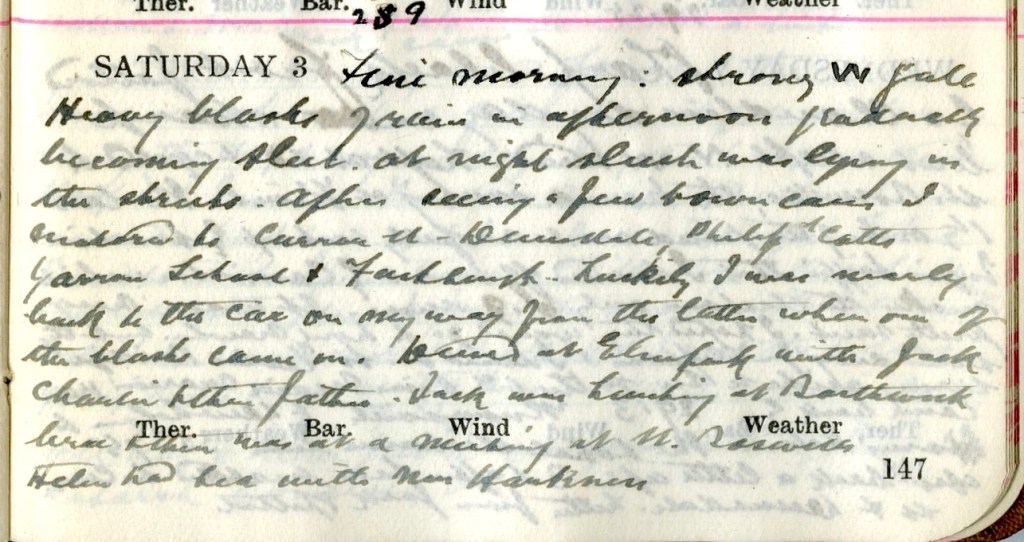 Ther. Bar. Wind Weather
289
SATURDAY 3 Fine morning: strong W gale
Heavy blasts of rain in afternoon gradually
becoming sleet. At night slush was lying in
the streets. After seeing a few town cases I
motored to Philip Catts
Yarrow School & Fastheugh. Luckily I was nearly
back to the car on my way from the latter when one of
the blasts came on. Dined at with Jack
Charlie & their father. Jack was hunting at Borthwick
Ther. Bar. Wind Weather
brae & then was at a meeting at St. Boswells
Helen had tea with Mrs Harkness
147